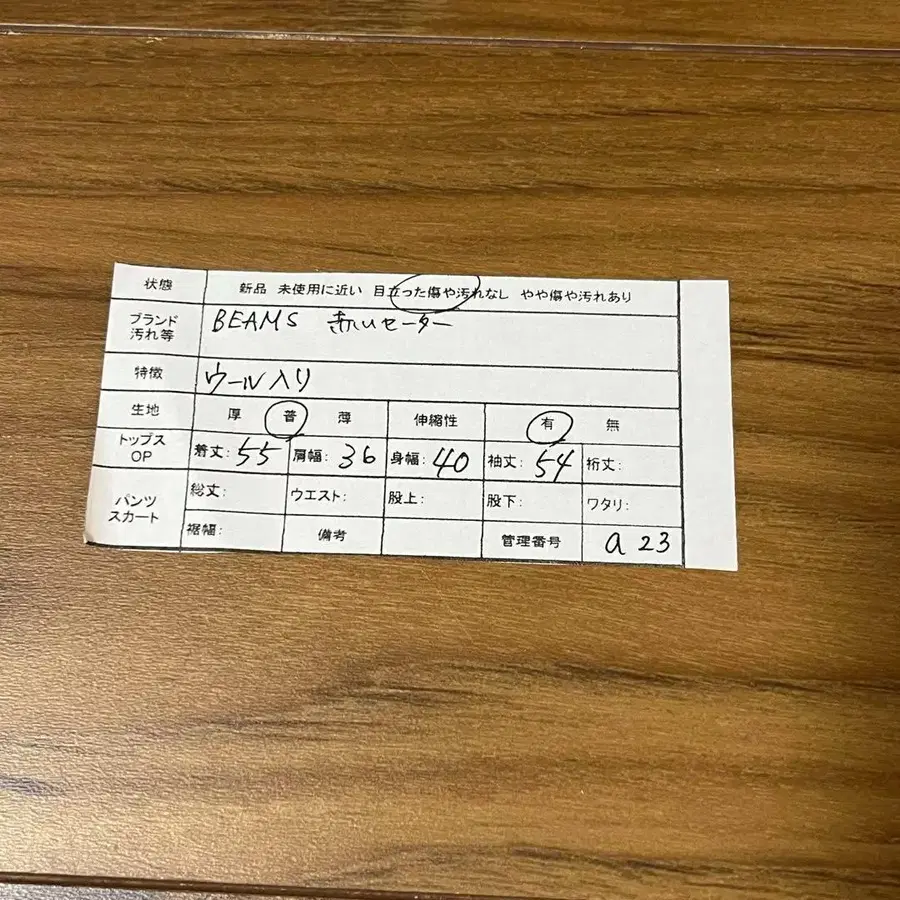 状態 新品 未使用に近い 目立った傷や汚れなし やや傷や汚れあり
ブランド 汚れ等 BEAMS 赤いセーター
特徴 ウール入り
生地 厚 普 薄 伸縮性 有 無
トップス OP 着丈: 55 肩幅: 36 身幅: 40 袖丈: 54 裄丈:
パンツ スカート 総丈: ウエスト: 股上: 股下: ワタリ:
裾幅: 備考 管理番号 a 23